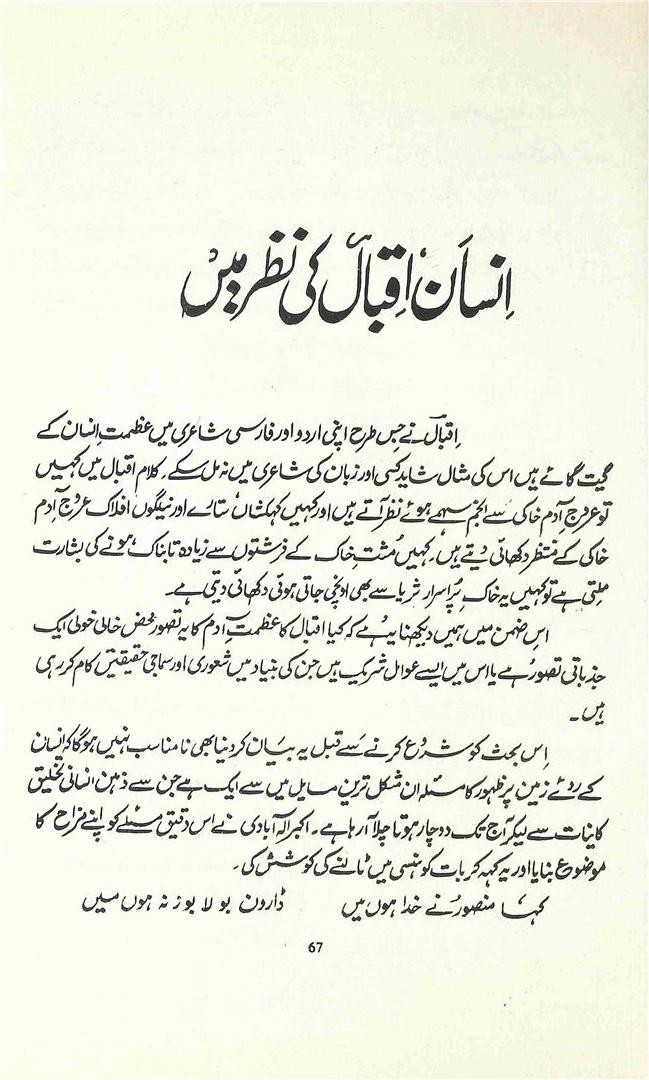 انسان، اقبال کی نظر میں
اقبال نے جس طرح اپنی اردو اور فارسی شاعری میں عظمتِ انسان کے
گیت گائے ہیں اس کی مثال شاید کسی اور زبان کی شاعری میں نہ مل سکے۔ کلام اقبال میں کہیں
تو عروجِ آدم خاکی سے انجم سہمے ہوئے نظر آتے ہیں اور کہیں کہکشاں، ستارے اور نیلگوں افلاک عروجِ آدم
خاکی کے منتظر دکھائی دیتے ہیں۔ کہیں مُشتِ خاک کے فرشتوں سے زیادہ تابناک ہونے کی بشارت
ملتی ہے تو کہیں یہ خاکِ پُراسرار ثریا سے بھی اونچی جاتی ہوئی دکھائی دیتی ہے۔
اس ضمن میں ہمیں دیکھنا یہ ہے کہ کیا اقبال کا عظمتِ آدم کا یہ تصور محض خالی خولی ایک
جذباتی تصور ہے یا اس میں ایسے عوامل شریک ہیں جن کی بنیاد میں شعوری اور سماجی حقیقتیں کام کر رہی
ہیں۔
اِس بحث کو شروع کرنے سے قبل یہ بیان کر دینا بھی نامناسب نہیں ہوگا کہ انسان
کے روئے زمین پر ظہور کا مسئلہ ان مشکل ترین مسایل میں سے ایک ہے جن سے ذہن انسانی تخلیق
کاینات سے لیکر آج تک دوچار ہوتا چلا آ رہا ہے۔ اکبر الہ آبادی نے اس دقیق مسئلے کو اپنے مزاح کا
موضوع بنایا اور یہ کہہ کر بات کو ہنسی میں ٹالنے کی کوشش کی۔
کہا منصور نے خدا ہوں میں ڈارون بولا بوزنہ ہوں میں
67